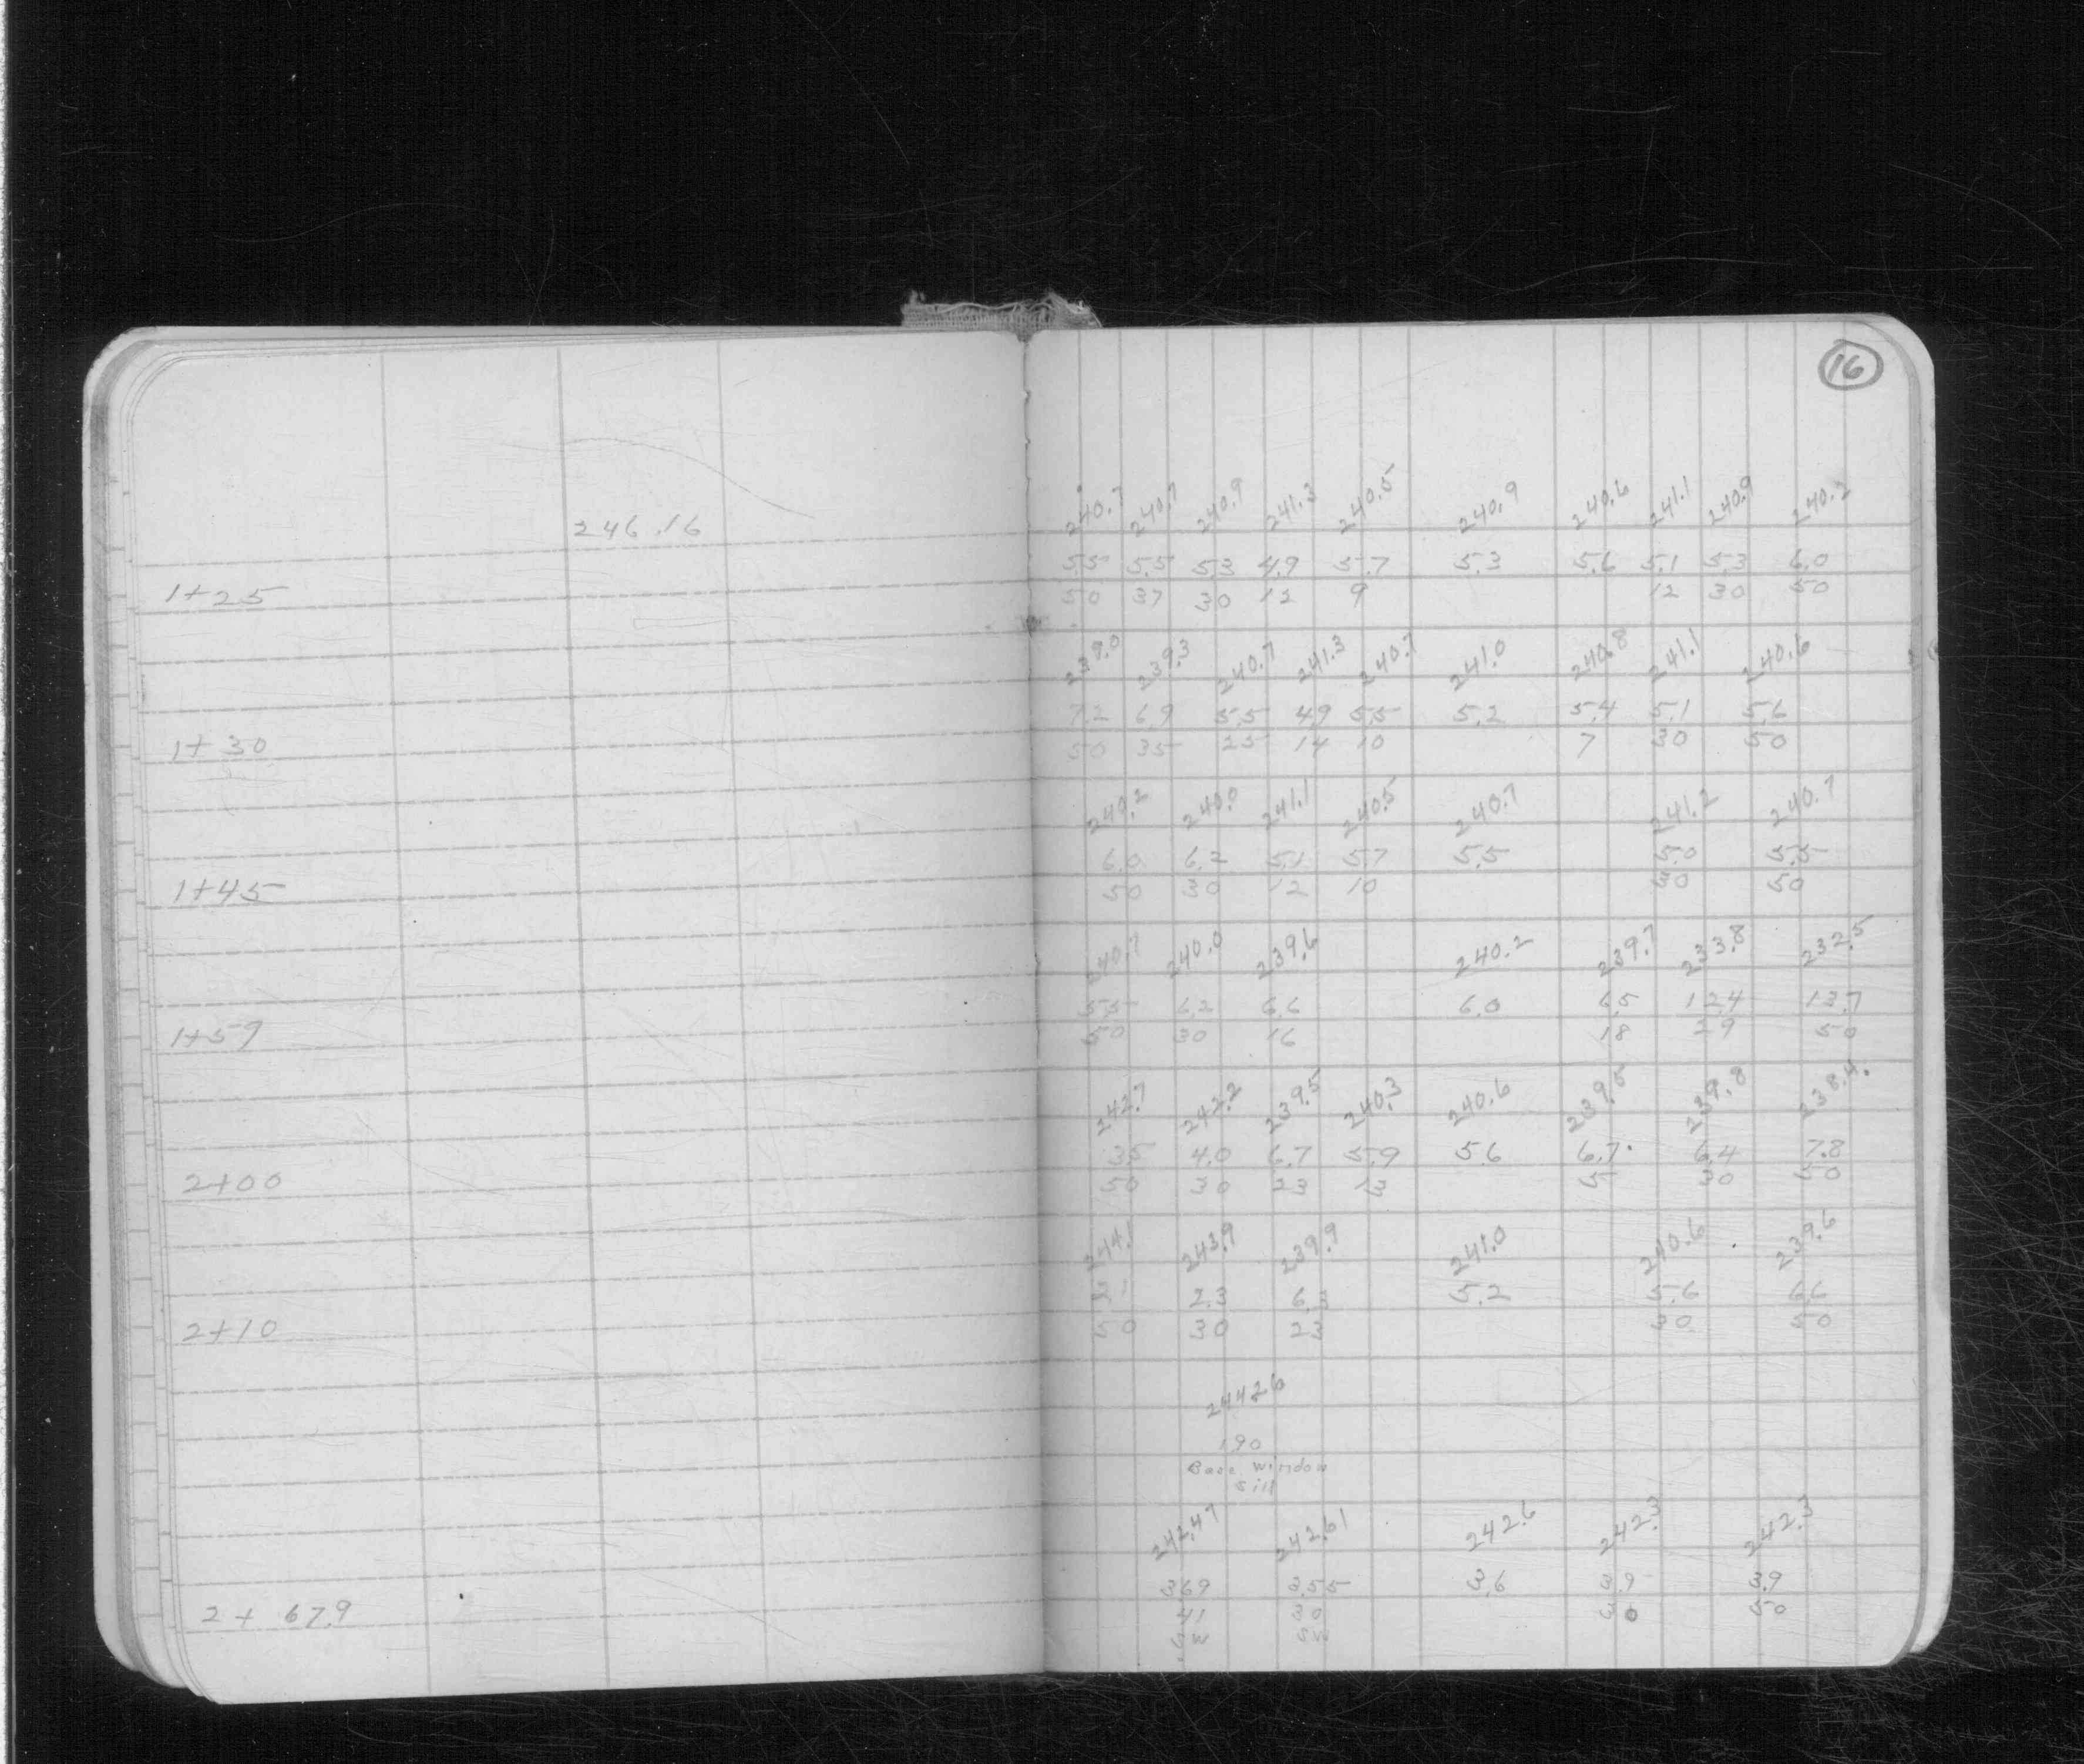 16
246.16
240.7 240.7 240.9 241.3 240.5 240.9 240.6 241.1 240.9 240.2
5.5 5.5 5.3 4.9 5.7 5.3 5.6 5.1 5.3 6.0
1+25 50 37 30 12 9 12 30 50
239.0 239.3 240.7 241.3 240.7 241.0 240.8 241.1 240.6
7.2 6.9 5.5 4.9 5.5 5.2 5.4 5.1 5.6
1+30 50 35 25 14 10 7 30 50
240.2 240.0 241.1 240.5 240.7 241.2 240.7
6.0 6.2 5.1 5.7 5.5 5.0 5.5
1+45 50 30 12 10 30 50
240.7 240.0 239.6 240.2 239.7 233.8 232.5
5.5 6.2 6.6 6.0 6.5 12.4 13.7
1+59 50 30 16 18 29 50
242.7 242.2 239.5 240.3 240.6 239.5 239.8 238.4
3.5 4.0 6.7 5.9 5.6 6.7 6.4 7.8
2+00 50 30 23 13 5 30 50
244.1 243.9 239.9 241.0 240.6 239.6
2.1 2.3 6.3 5.2 5.6 6.6
2+10 50 30 23 30 50
244.26
1.90
Base Window
Sill
242.47 242.61 242.6 242.3 242.3
3.69 3.55 3.6 3.9 3.9
2+67.9 41 30 30 50
SW SW